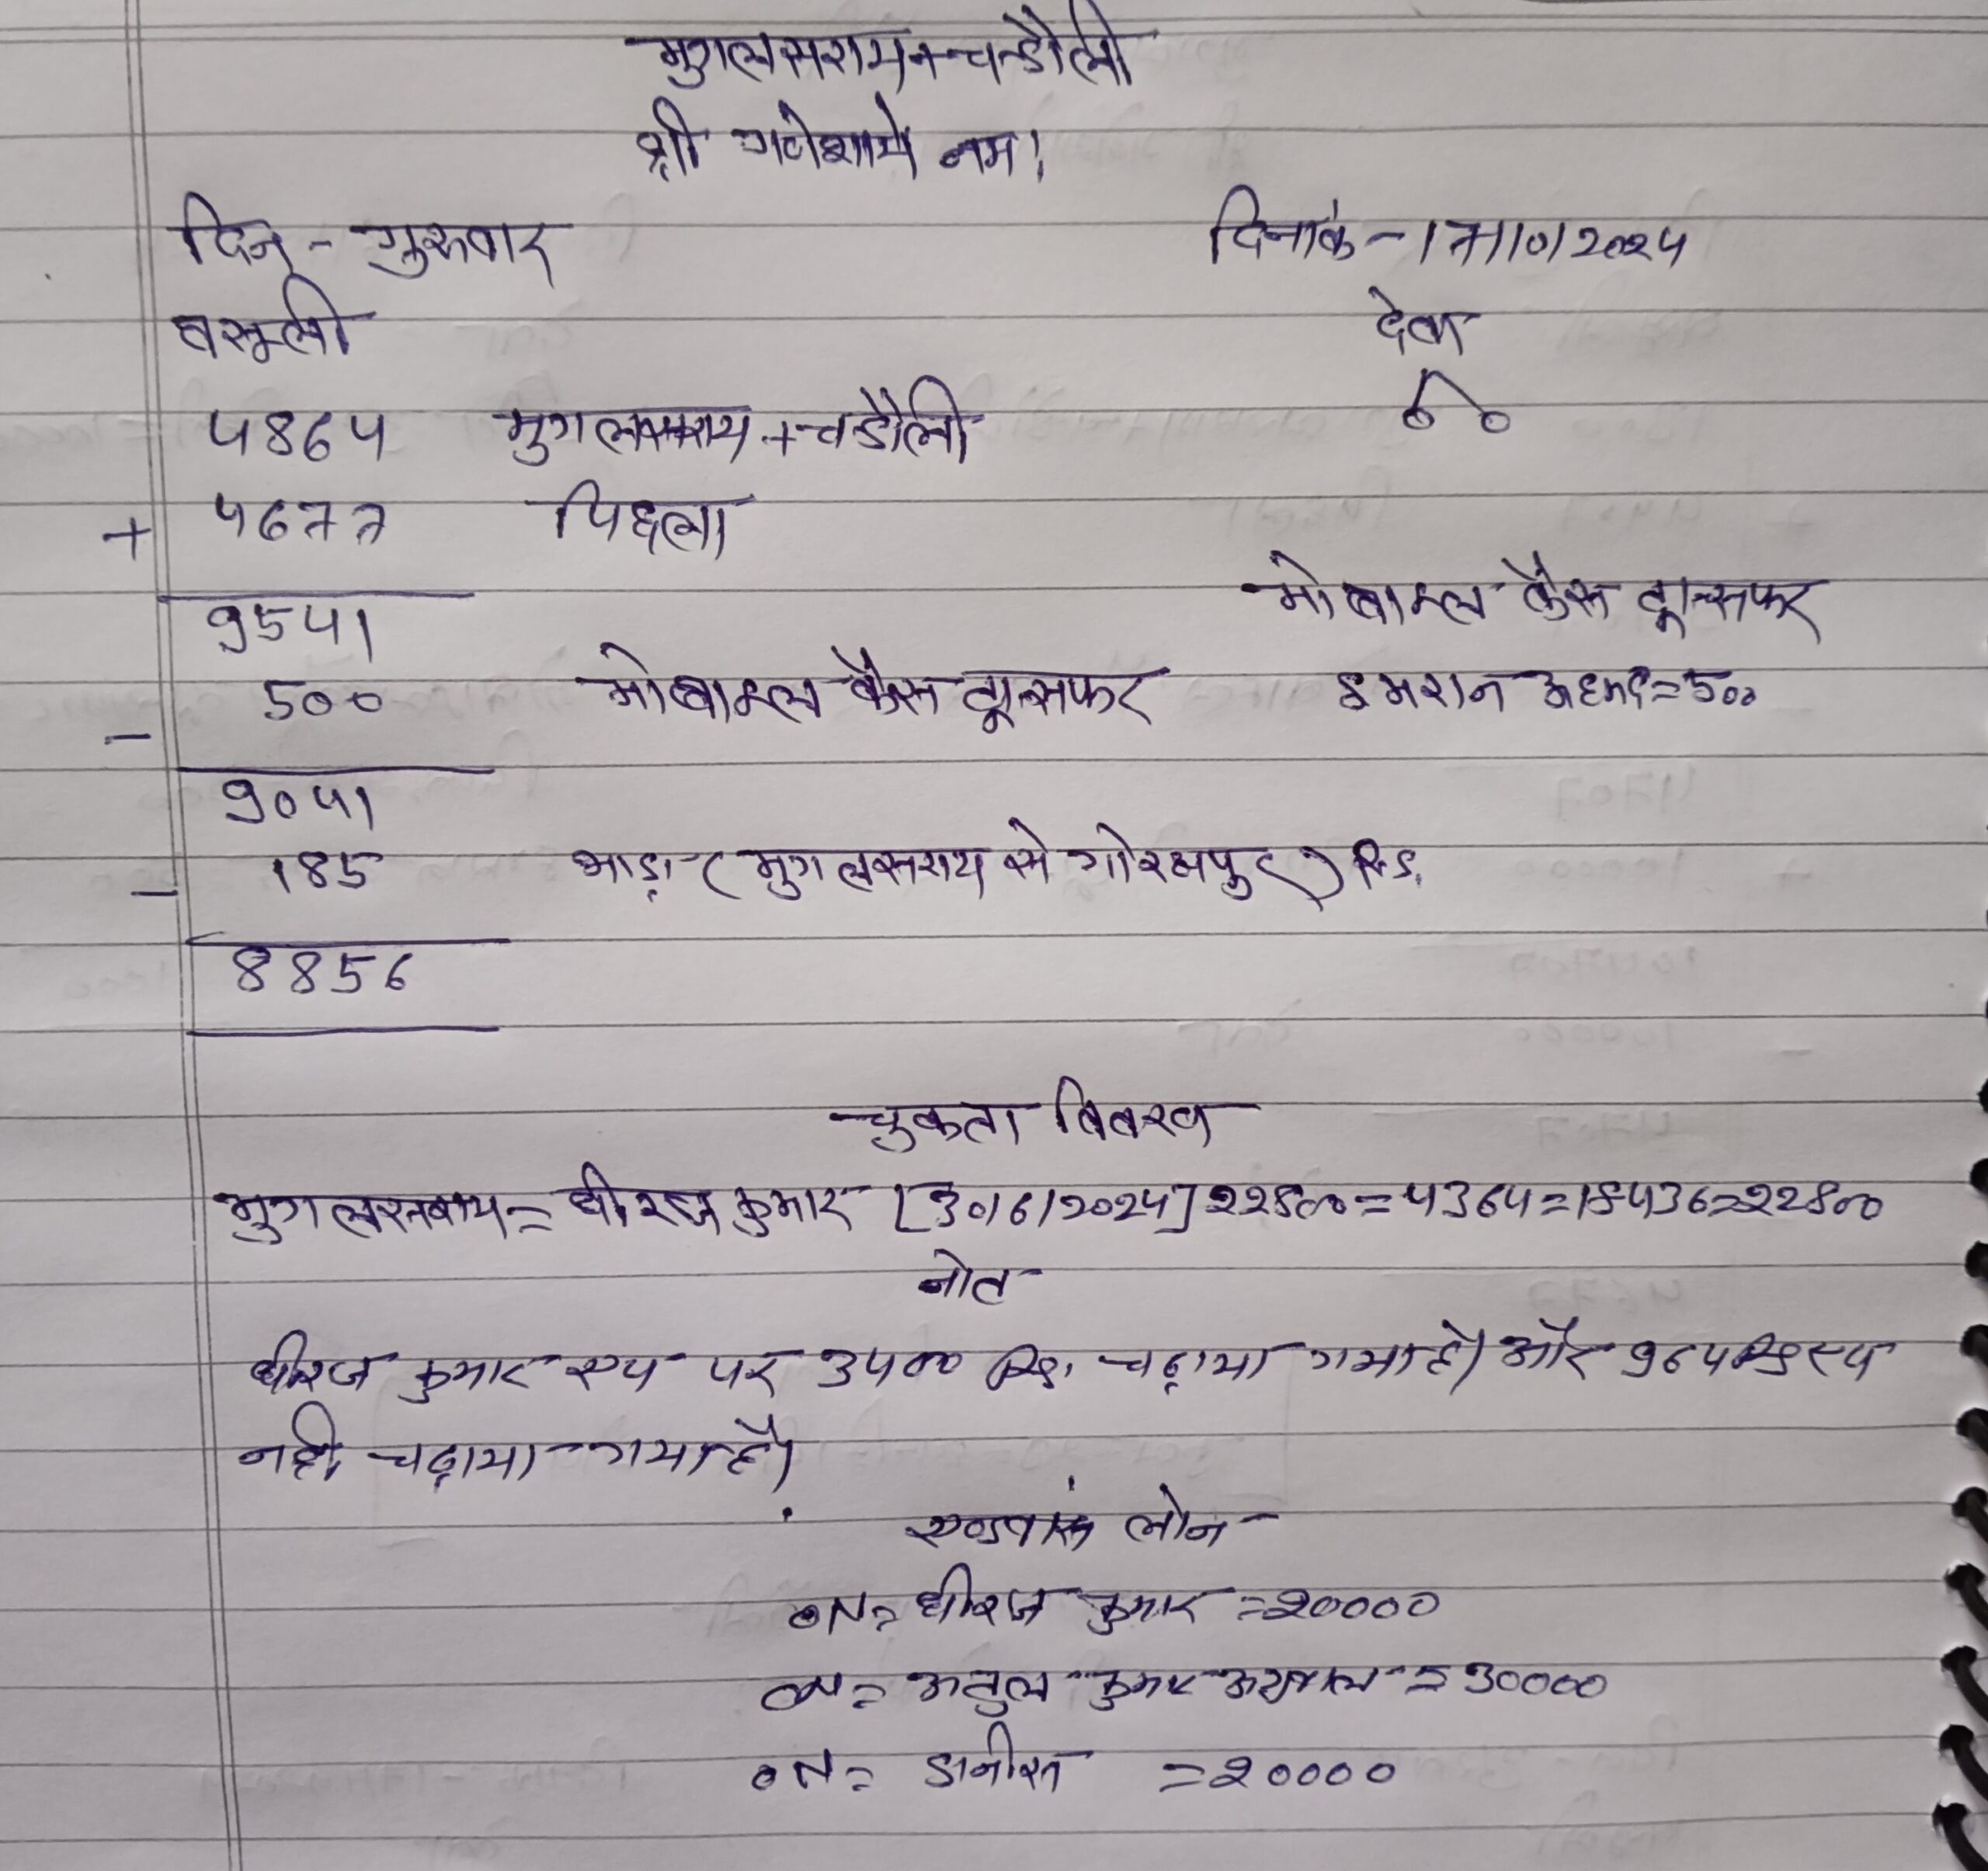 मुगलसराय+चन्डौली
श्री गणेशाये नम।
दिन - गुरुवार दिनांक - 17/10/2024
वसूली देवा
4864 मुगलसराय + चडौली
+ 4677 पिछला
9541 मोबाइल कैस ट्रान्सफर
- 500 मोबाइल कैस ट्रान्सफर इमरान अहमद = 500
9041
- 185 भाड़ा (मुगलसराय से गोरखपुर) रु.
8856
चुकता विवरण
मुगलसराय = धीरज कुमार [30/6/2024] 22800 = 4364 = 18436 = 22800
नोट
धीरज कुमार एप पर 3400 रु. चढ़ाया गया है। और 964 रु एप
नही चढ़ाया गया है।
एडवांस लोन
ON = धीरज कुमार = 20000
ON = अतुल कुमार अग्रवाल = 30000
ON = डानीस = 20000